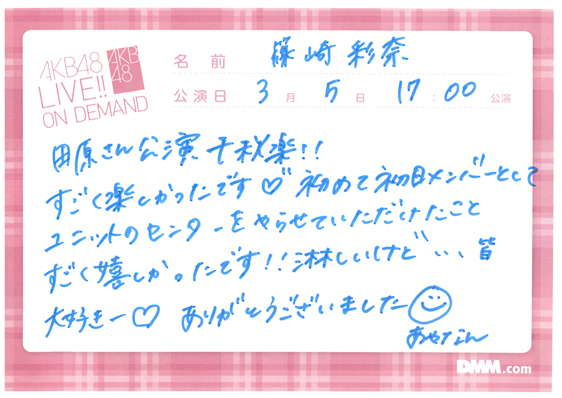 AKB48
LIVE!!
ON DEMAND
AKB
48
名前 篠崎彩奈
公演日 3月5日 17:00公演
田原さん公演千秋楽!!
すごく楽しかったです♡初めて初日メンバーとして
ユニットのセンターをやらせていただけたこと
すごく嬉しかったです!!淋しいけど、、、皆
大好きー♡ ありがとうございました
あやなん
DMM.com